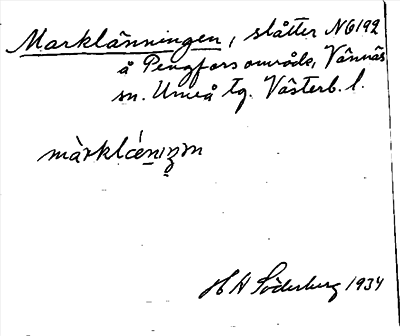 Marklänningen, slåtter NG192
å Pengfors område, Vännäs
sn. Umeå tg. Västerb. l.
màrklǽnıŋm
H A Söderberg 1934